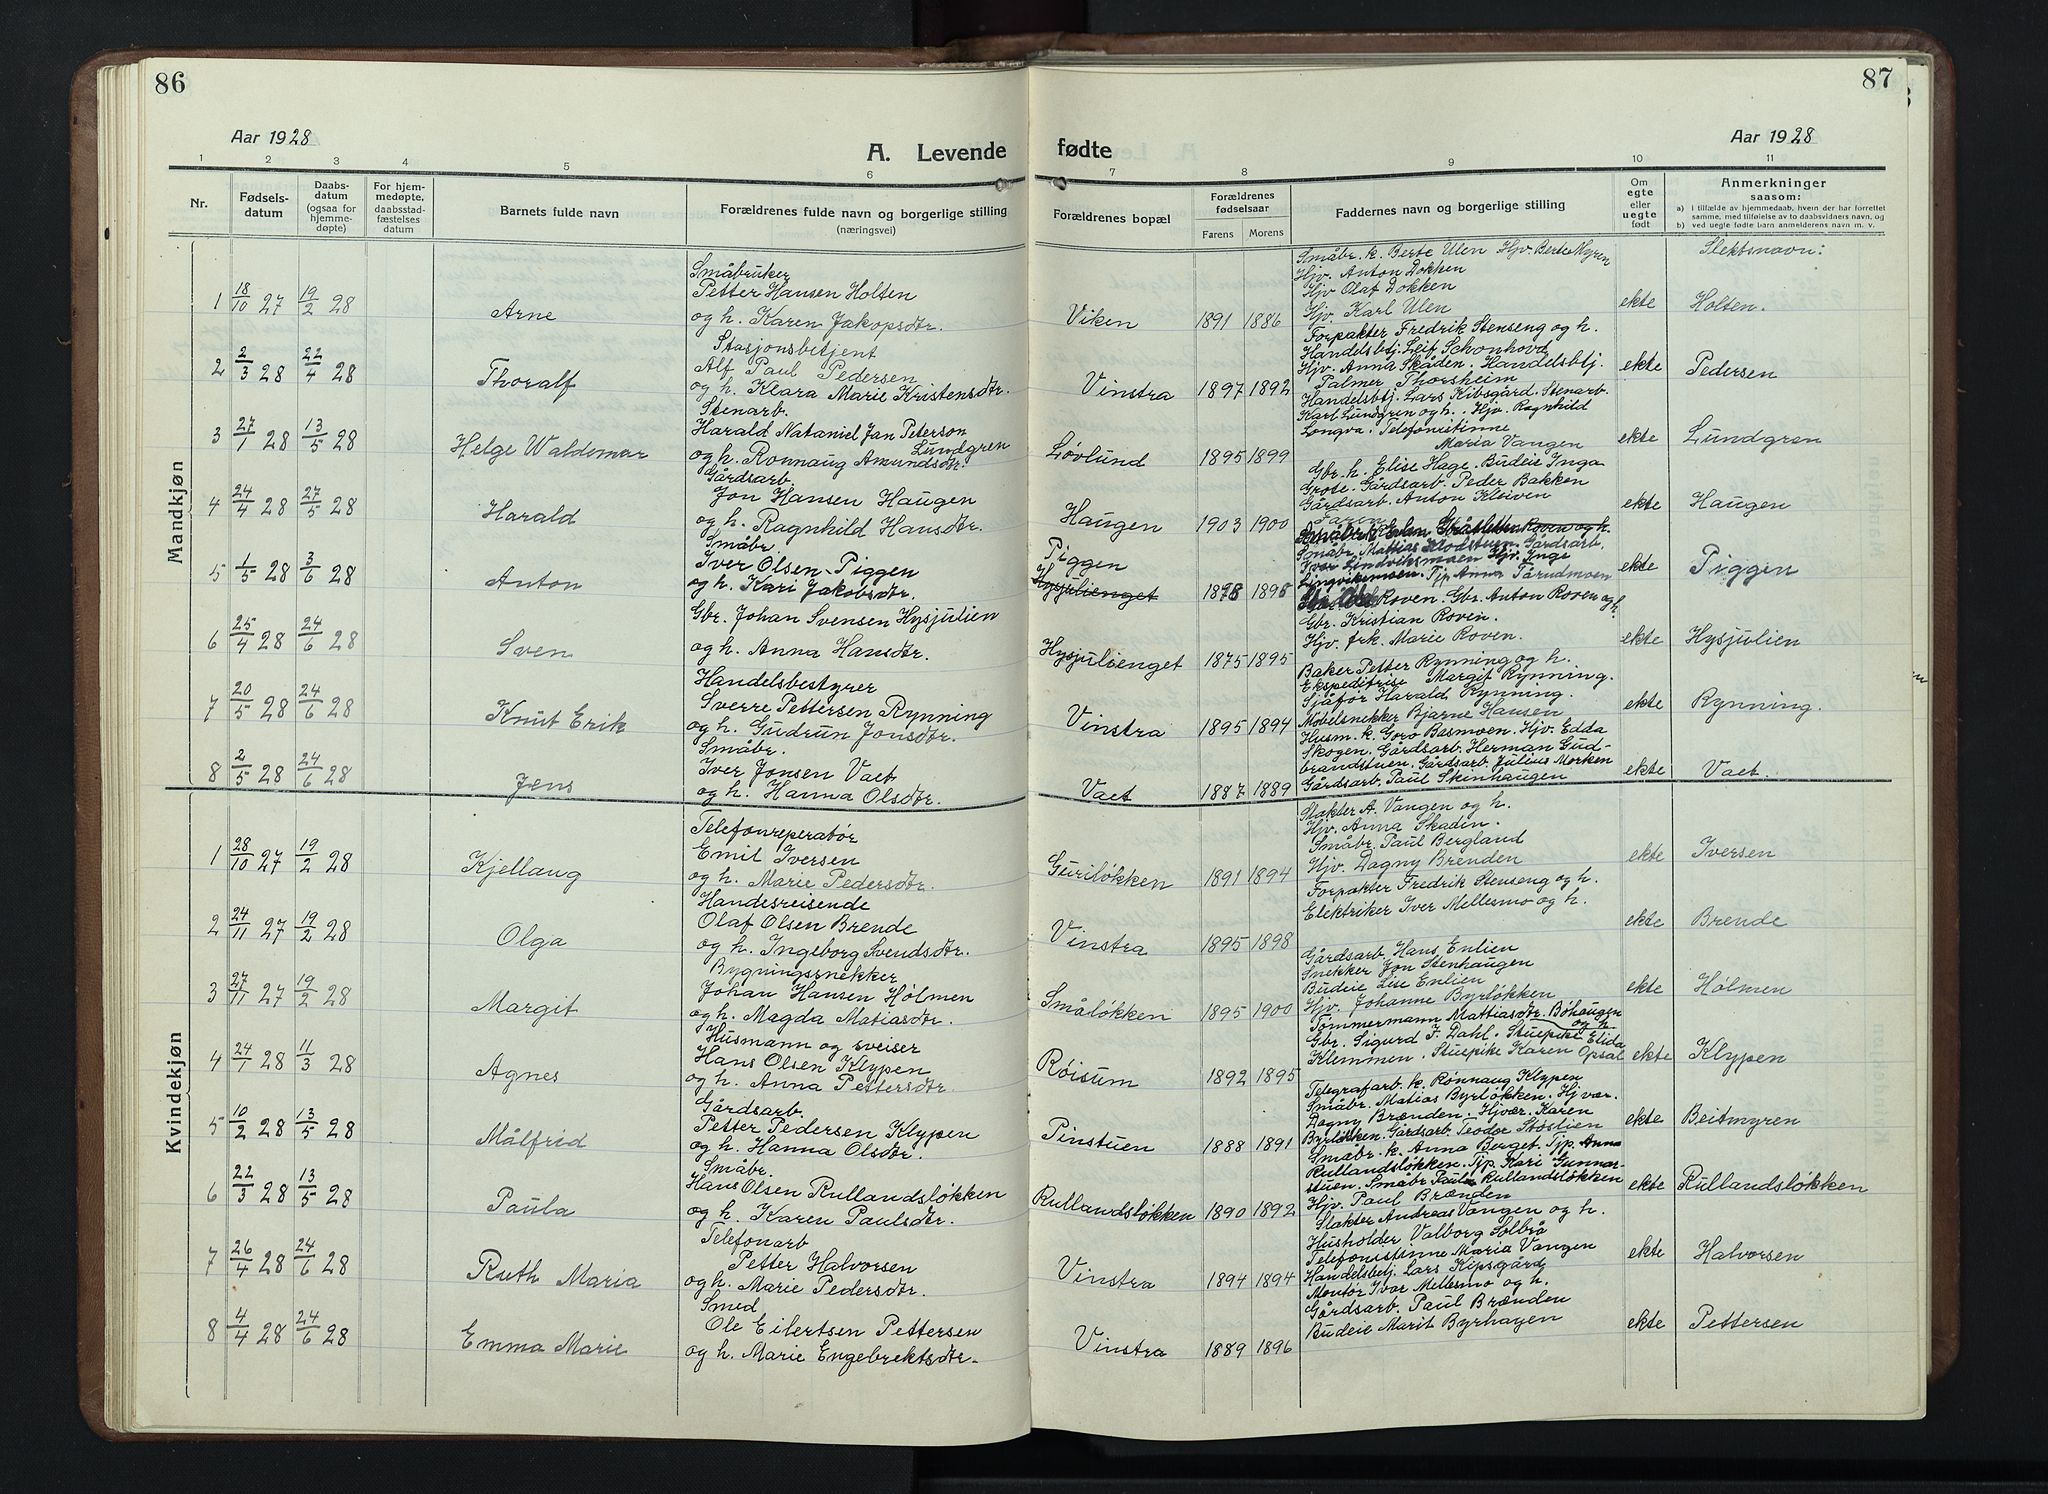 86
Aar 1928
A. Levende
1 2 3 4 5 6
Nr.
Fødsels-
datum
Daabs-
datum
(ogsaa for
hjemme-
døpte)
For hjem-
medøpte,
daabsstad-
fæstelses
datum
Barnets fulde navn
Forældrenes fulde navn og borgerlige stilling
(næringsvei)
Mandkjøn
Småbruker
Petter Hansen Holten
1 18/10 27 19/2 28 Arne og h. Karen Jakopsdtr.
Stasjonsbetjent
Alf Paul Pedersen
2 2/3 28 22/4 28 Thoralf og h. Klara Marie Kristensdtr.
Stenarb.
Harald Nataniel Jan Peterson
Lundgren
3 27/1 28 13/5 28 Helge Waldemar og h. Ronnaug Amundsdtr.
Gårdsarb.
Jon Hansen Haugen
4 24/4 28 27/5 28 Harald og h. Ragnhild Hansdtr.
Småbr.
Iver Olsen Piggen
5 1/5 28 3/6 28 Anton og h. Kari Jakobsdtr.
Gbr. Johan Svensen Hysjulien
6 25/4 28 24/6 28 Sven og h. Anna Hansdtr.
Handelsbestyrer
Sverre Pettersen Rynning
7 20/5 28 24/6 28 Knut Erik og h. Gudrun Jonsdtr.
Småbr.
Iver Jonsen Vaet
8 2/5 28 24/6 28 Jens og h. Hanna Olsdtr.
Kvindekjøn
Telefonreperatør
Emil Iversen
1 28/10 27 19/2 28 Kjellaug og h. Marie Pedersdtr.
Handesreisende
Olaf Olsen Brende
2 24/11 27 19/2 28 Olga og h. Ingeborg Svendsdtr.
Bygningssnekker
Johan Hansen Hølmen
3 27/11 27 19/2 28 Margit og h. Magda Matiasdtr.
Husmann og sveiser
Hans Olsen Klypen
4 24/1 28 11/3 28 Agnes og h. Anna Pettersdtr.
Gårdsarb.
Petter Pedersen Klypen
5 10/2 28 13/5 28 Målfrid og h. Hanna Olsdtr.
Småbr.
Hans Olsen Rullandsløkken
6 22/3 28 13/5 28 Paula og h. Karen Paulsdtr.
Telefonarb
Petter Halvorsen
7 26/4 28 24/6 28 Ruth Maria og h. Marie Pedersdtr.
Smed
Ole Eilertsen Pettersen
8 4/4 28 24/6 28 Emma Marie og h. Marie Engebrektsdtr.
87
Aar 1928
fødte
7 8 9 10 11
Forældrenes bopæl
Forældrenes
fødselsaar
Farens Morens
Faddernes navn og borgerlige stilling
Om
egte
eller
uegte
født
Anmerkninger
saasom:
a) I tilfælde av hjemmedaab, hvem der har forrettet
samme, med tilføielse av to daabsvidners navn, og
b) ved uegte fødte barn anmelderens navn m. v.
Slektsnavn:
Småbr. k. Berte Ulen Hjv. Berte Myren
Hjv. Anton Dokken
Hjv Olaf Dokken
Viken 1891 1886 Hjv. Karl Ulen ekte Holten.
Forpakter Fredrik Stenseng og h.
Handelsbtj. Leif Schonhovd
Hjv. Anna Skåden. Handelsbtj.
Vinstra 1897 1892 Palmer Thorsheim ekte Pedersen
Handelsbtj. Lars Kibsgård. Stenarb.
Karl Lundgren og h. Hjv. Ragnhild
Longva. Telefonistinne
Løvlund 1895 1899 Maria Vangen ekte Lundgren
Gbr. h. Elise Hage. Budeie Inga
Grote. Gårdsarb. Peder Bakken
Gårdsarb. Anton Kleiven
Haugen 1903 1900 ekte Haugen
Roven og h.
Småbr. Mattias Gårdsarb.
Iver Lindviksmoen Hjv. Inge
Tjp Anna Tårudmoen
Piggen
Hysjulienget 1878 1898 ekte Piggen
Roven. Gbr. Anton Roven og h.
Gbr. Kristian Roven.
Hysjulienget 1875 1895 Hjv. frk. Marie Roven. ekte Hysjulien
Baker Petter Rynning og h.
Ekspeditrise Margit Rynning.
Sjåfør Harald Rynning.
Vinstra 1895 1894 Møbelsnekker Bjarne Hansen ekte Rynning.
Husm. k. Goro Basmoen. Hjv. Edda
Skogen. Gårdsarb. Herman Gud-
brandstuen. Gårdsarb Julius Morken
Vaet 1887 1889 Gårdsarb. Paul Skinhaugen ekte Vaet.
Slakter A. Vangen og h.
Hjv. Anna Skaden.
Småbr. Paul Bergland
Guriløkken 1891 1894 Hjv. Dagny Brenden ekte Iversen
Forpakter Fredrik Stenseng og h.
Elektriker Iver Mellesmo og h.
Vinstra 1895 1898 ekte Brende
Gårdsarb. Hans Enlien
Snekker Jon Stenhaugen
Budeie Lise Enlien
Småløkken 1895 1900 Hjv. Johanne Byrløkken ekte Hølmen
Tømmermann Mattiasdtr. Bøhaugen
og h
Gbr. Sigurd F. Dahl. Stuepike Elida
Røisum 1892 1895 Klemmen. Stuepike Karen Opsal ekte Klypen
Telegrafarb. k. Rønnaug Klypen
Småbr. Matias Byrløkken. Hjvær.
Dagny Brænden. Hjvær. Karen
Pinstuen 1888 1891 Byrløkken. Gårdsarb. Teodor Støstien ekte Beitmyren
Småbr. k. Anna Berget. Tjp. Anna
Rullandsløkken. Tjp. Kari Gunnar-
stuen. Småbr Paul Rullandsløkken
Rullandsløkken 1890 1892 Hjv. Paul Brænden ekte Rullandsløkken
Slakter Andreas Vangen og h.
Husholder Valborg Solbrå
Telefonistinne Maria Vangen
Vinstra 1894 1894 Handelsbetj. Lars Kipsgård ekte Halvorsen
Montør Ivar Mellesmo og h.
Gårdsarb. Paul Brænden
Vinstra 1889 1896 Budeie Marit Byrhagen ekte Pettersen